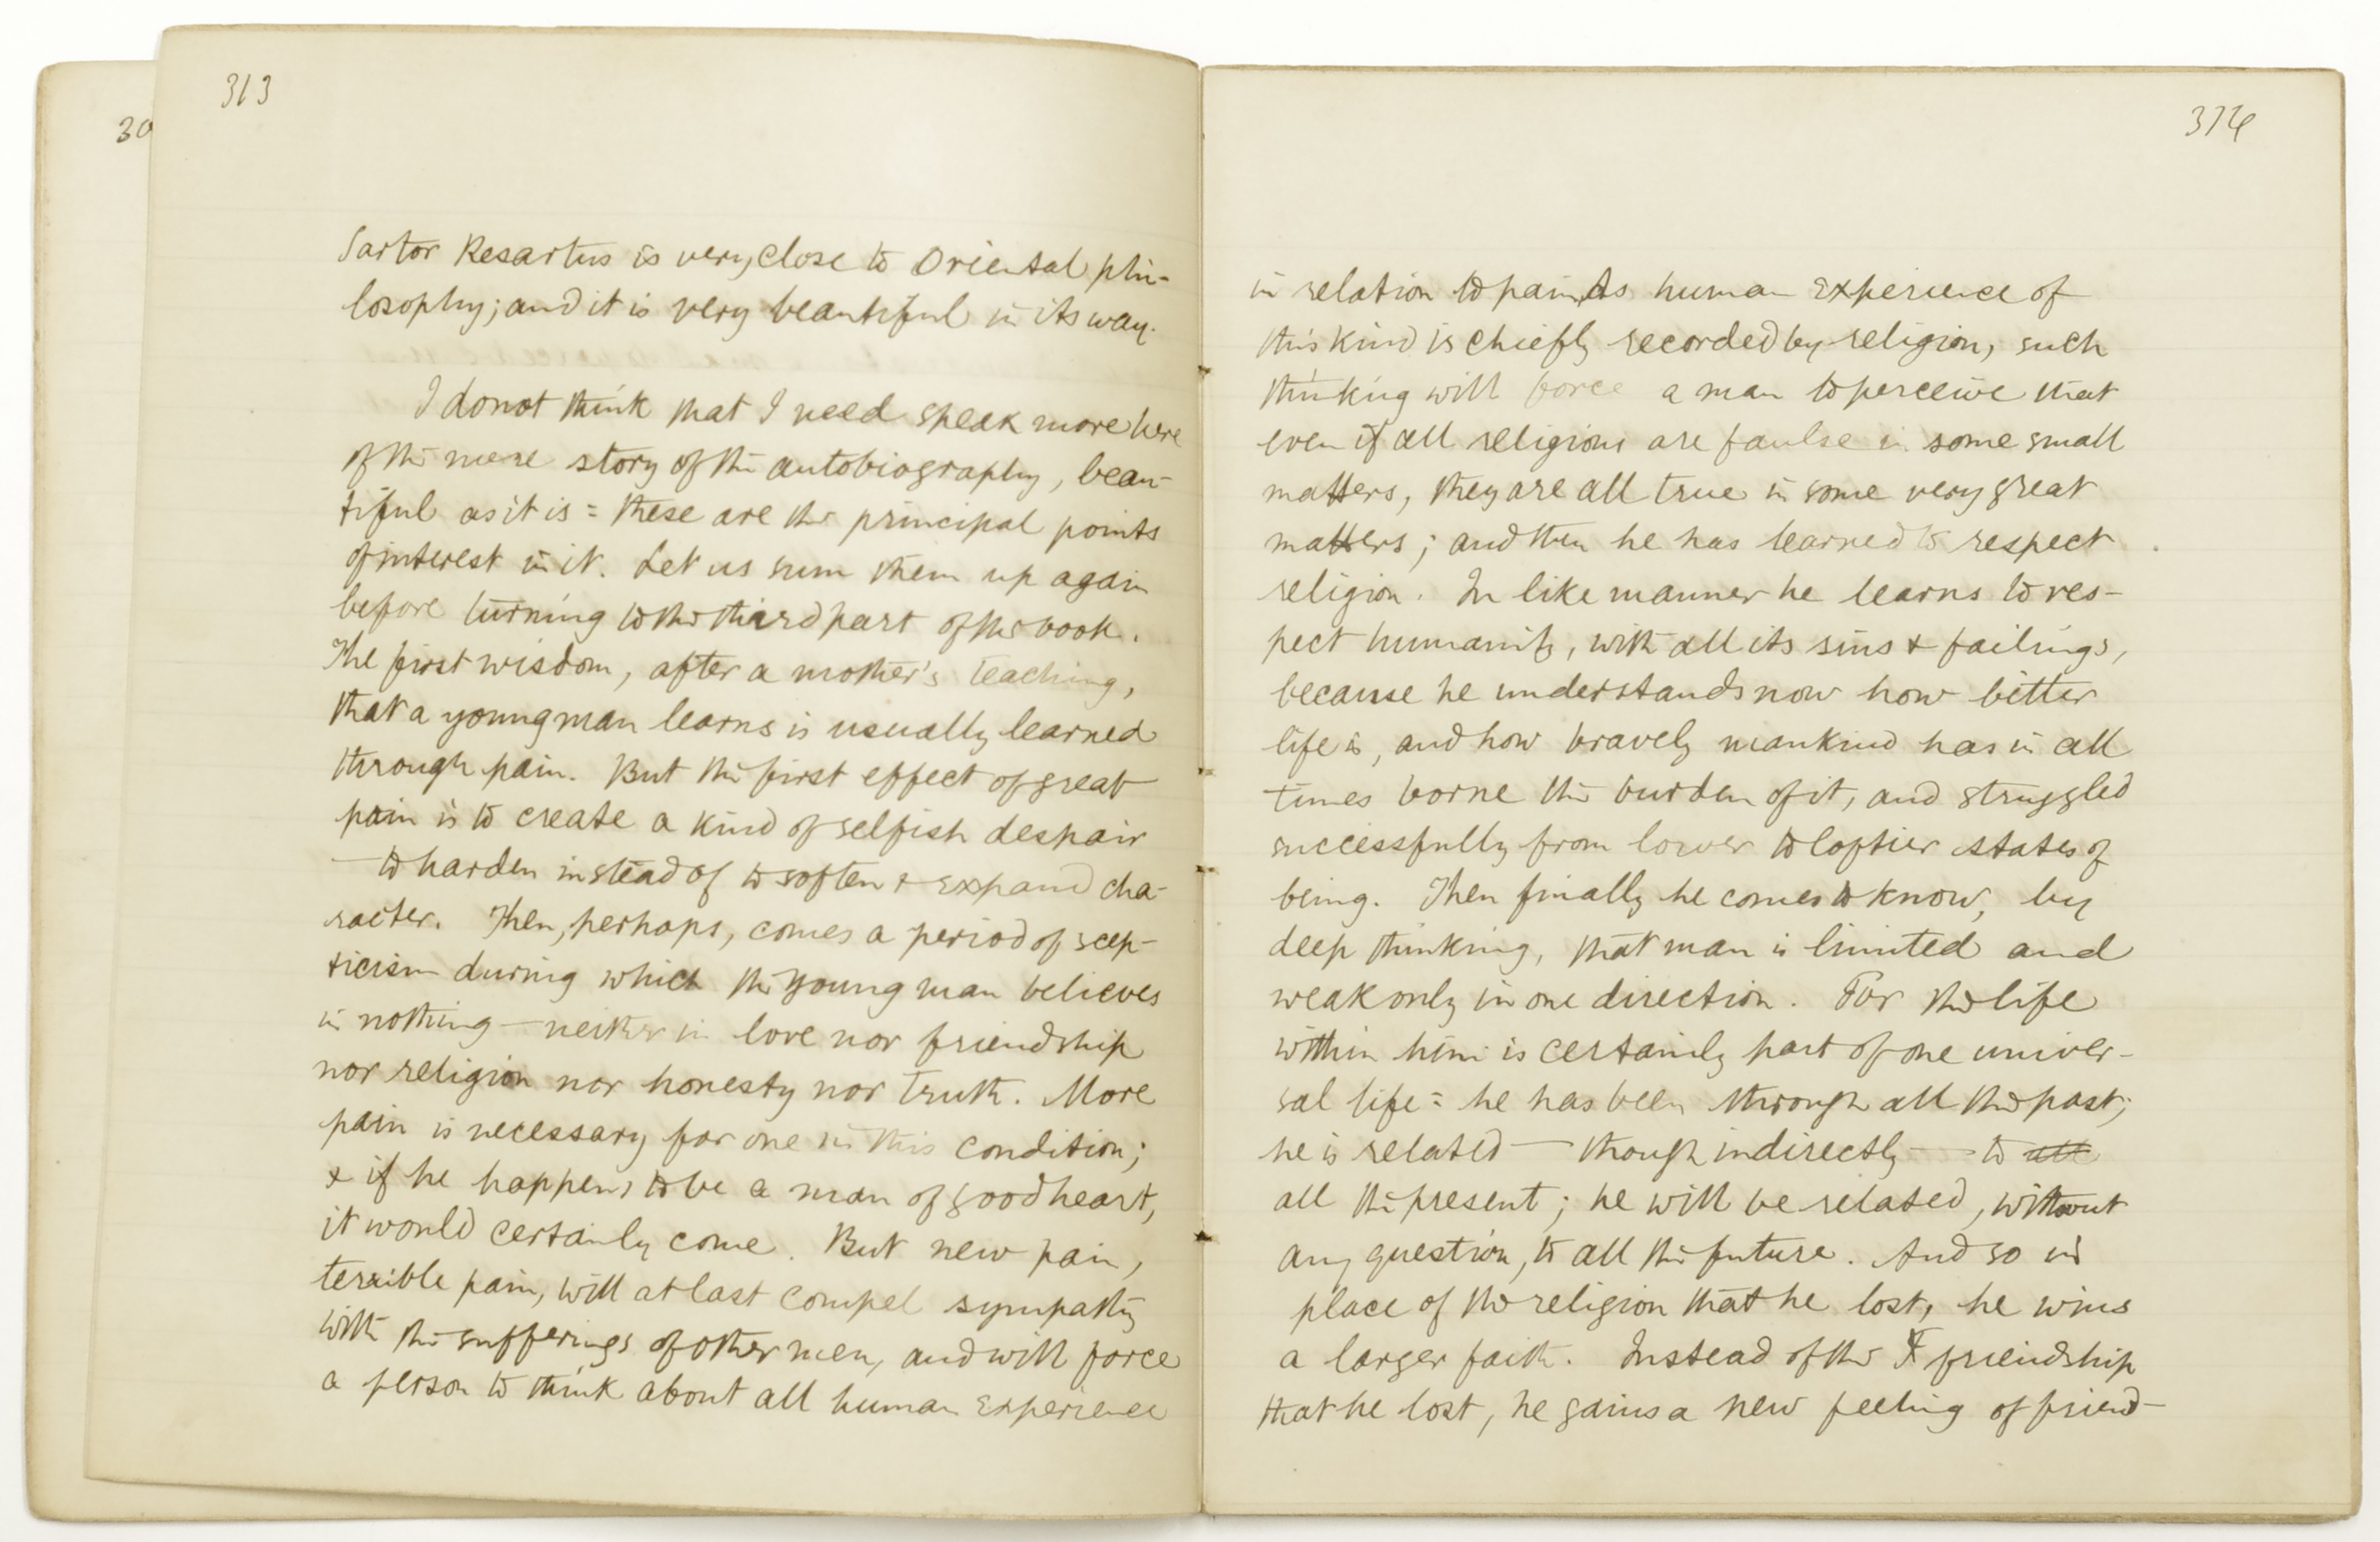 313
30
Sartor Resartus is very close to Oriental phi-
losophy; and it is very beautiful in its way.
I do not think that I need speak more here
of the mere story of the autobiography, beau-
tiful as it is = these are the principal points
of interest in it. Let us sum them up again
before turning to the third part of the book.
The first wisdom, after a mother's teaching,
that a young man learns is usually learned
through pain. But the first effect of great
pain is to create a kind of selfish despair
— to harden instead of to soften & expand cha-
racter. Then, perhaps, comes a period of scep-
ticism during which the young man believes
in nothing — neither in love nor friendship
nor religion nor honesty nor truth. More
pain is necessary for one in this condition;
& if he happens to be a man of good heart,
it would certainly come. But new pain,
terrible pain, will at last compel sympathy
with the sufferings of other men, and will force
a person to think about all human experience
314
in relation to pain. As human experience of
this kind is chiefly recorded by religion, such
thinking will force a man to perceive that
even if all religions are faulse in some small
matters, they are all true in some very great
matters; and then he has learned to respect
religion. In like manner he learns to res-
pect humanity, with all its sins & failings,
because he understands now how bitter
life is, and how bravely mankind has in all
times borne the burden of it, and struggled
successfully from lower to loftier states of
being. Then finally he comes to know, by
deep thinking, that man is limited and
weak only in one direction. For the life
within him is certainly part of one univer-
sal life = he has been through all the past;
he is related — though indirectly — to all
all the present; he will be related, without
any question, to all the future. And so in
place of the religion that he lost, he wins
a larger faith. Instead of the F friendship
that he lost, he gains a new feeling of friend-